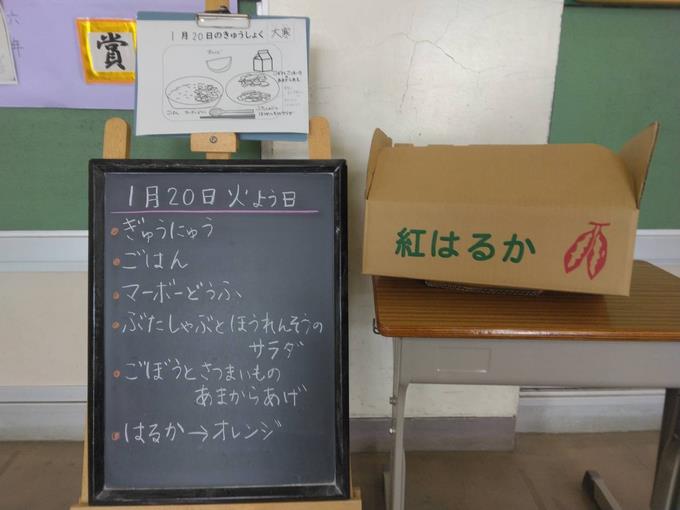 六年
賞
1月20日のきゅうしょく
大寒
ごはん
1月20日火よう日
・ぎゅうにゅう
・ごはん
・マーボーどうふ
・ぶたしゃぶとほうれんそうの
サラダ
・ごぼうとさつまいもの
あまからあげ
・はるか→オレンジ
紅はるか